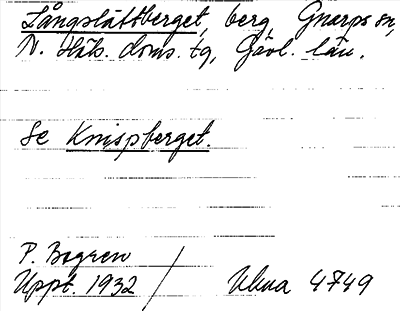 Långslåttberget, berg Gnarps sn,
N. Häls. doms. tg, Gävl. län.
Se Knispberget.
P. Bogren
Uppt. 1932 / 4749